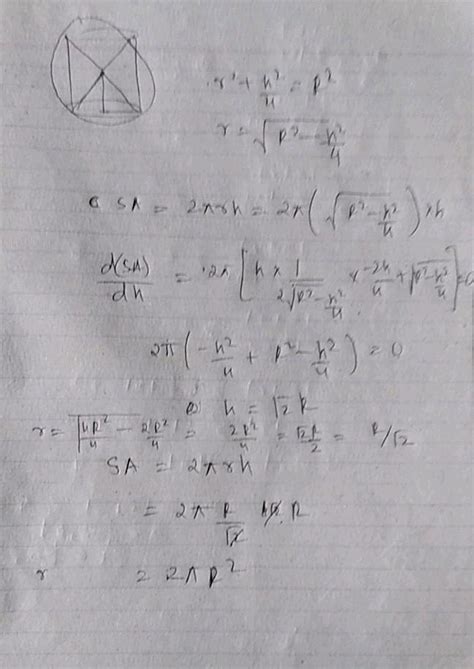 r² + h²/4 = R²
r = √(R² - h²/4)
C SA = 2πrh = 2π(√(R² - h²/4)) × h
d(SA)/dh = 2π[h × 1/(2√(R² - h²/4)) × -2h/4 + √(R² - h²/4)] = 0
2π(-h²/4 + R² - h²/4) = 0
h = √2 R
r = √(4R²/4 - 2R²/4) = 2R²/4 = √2R/2 = R/√2
SA = 2πrh
= 2π R/√2 R
r = 2πR²